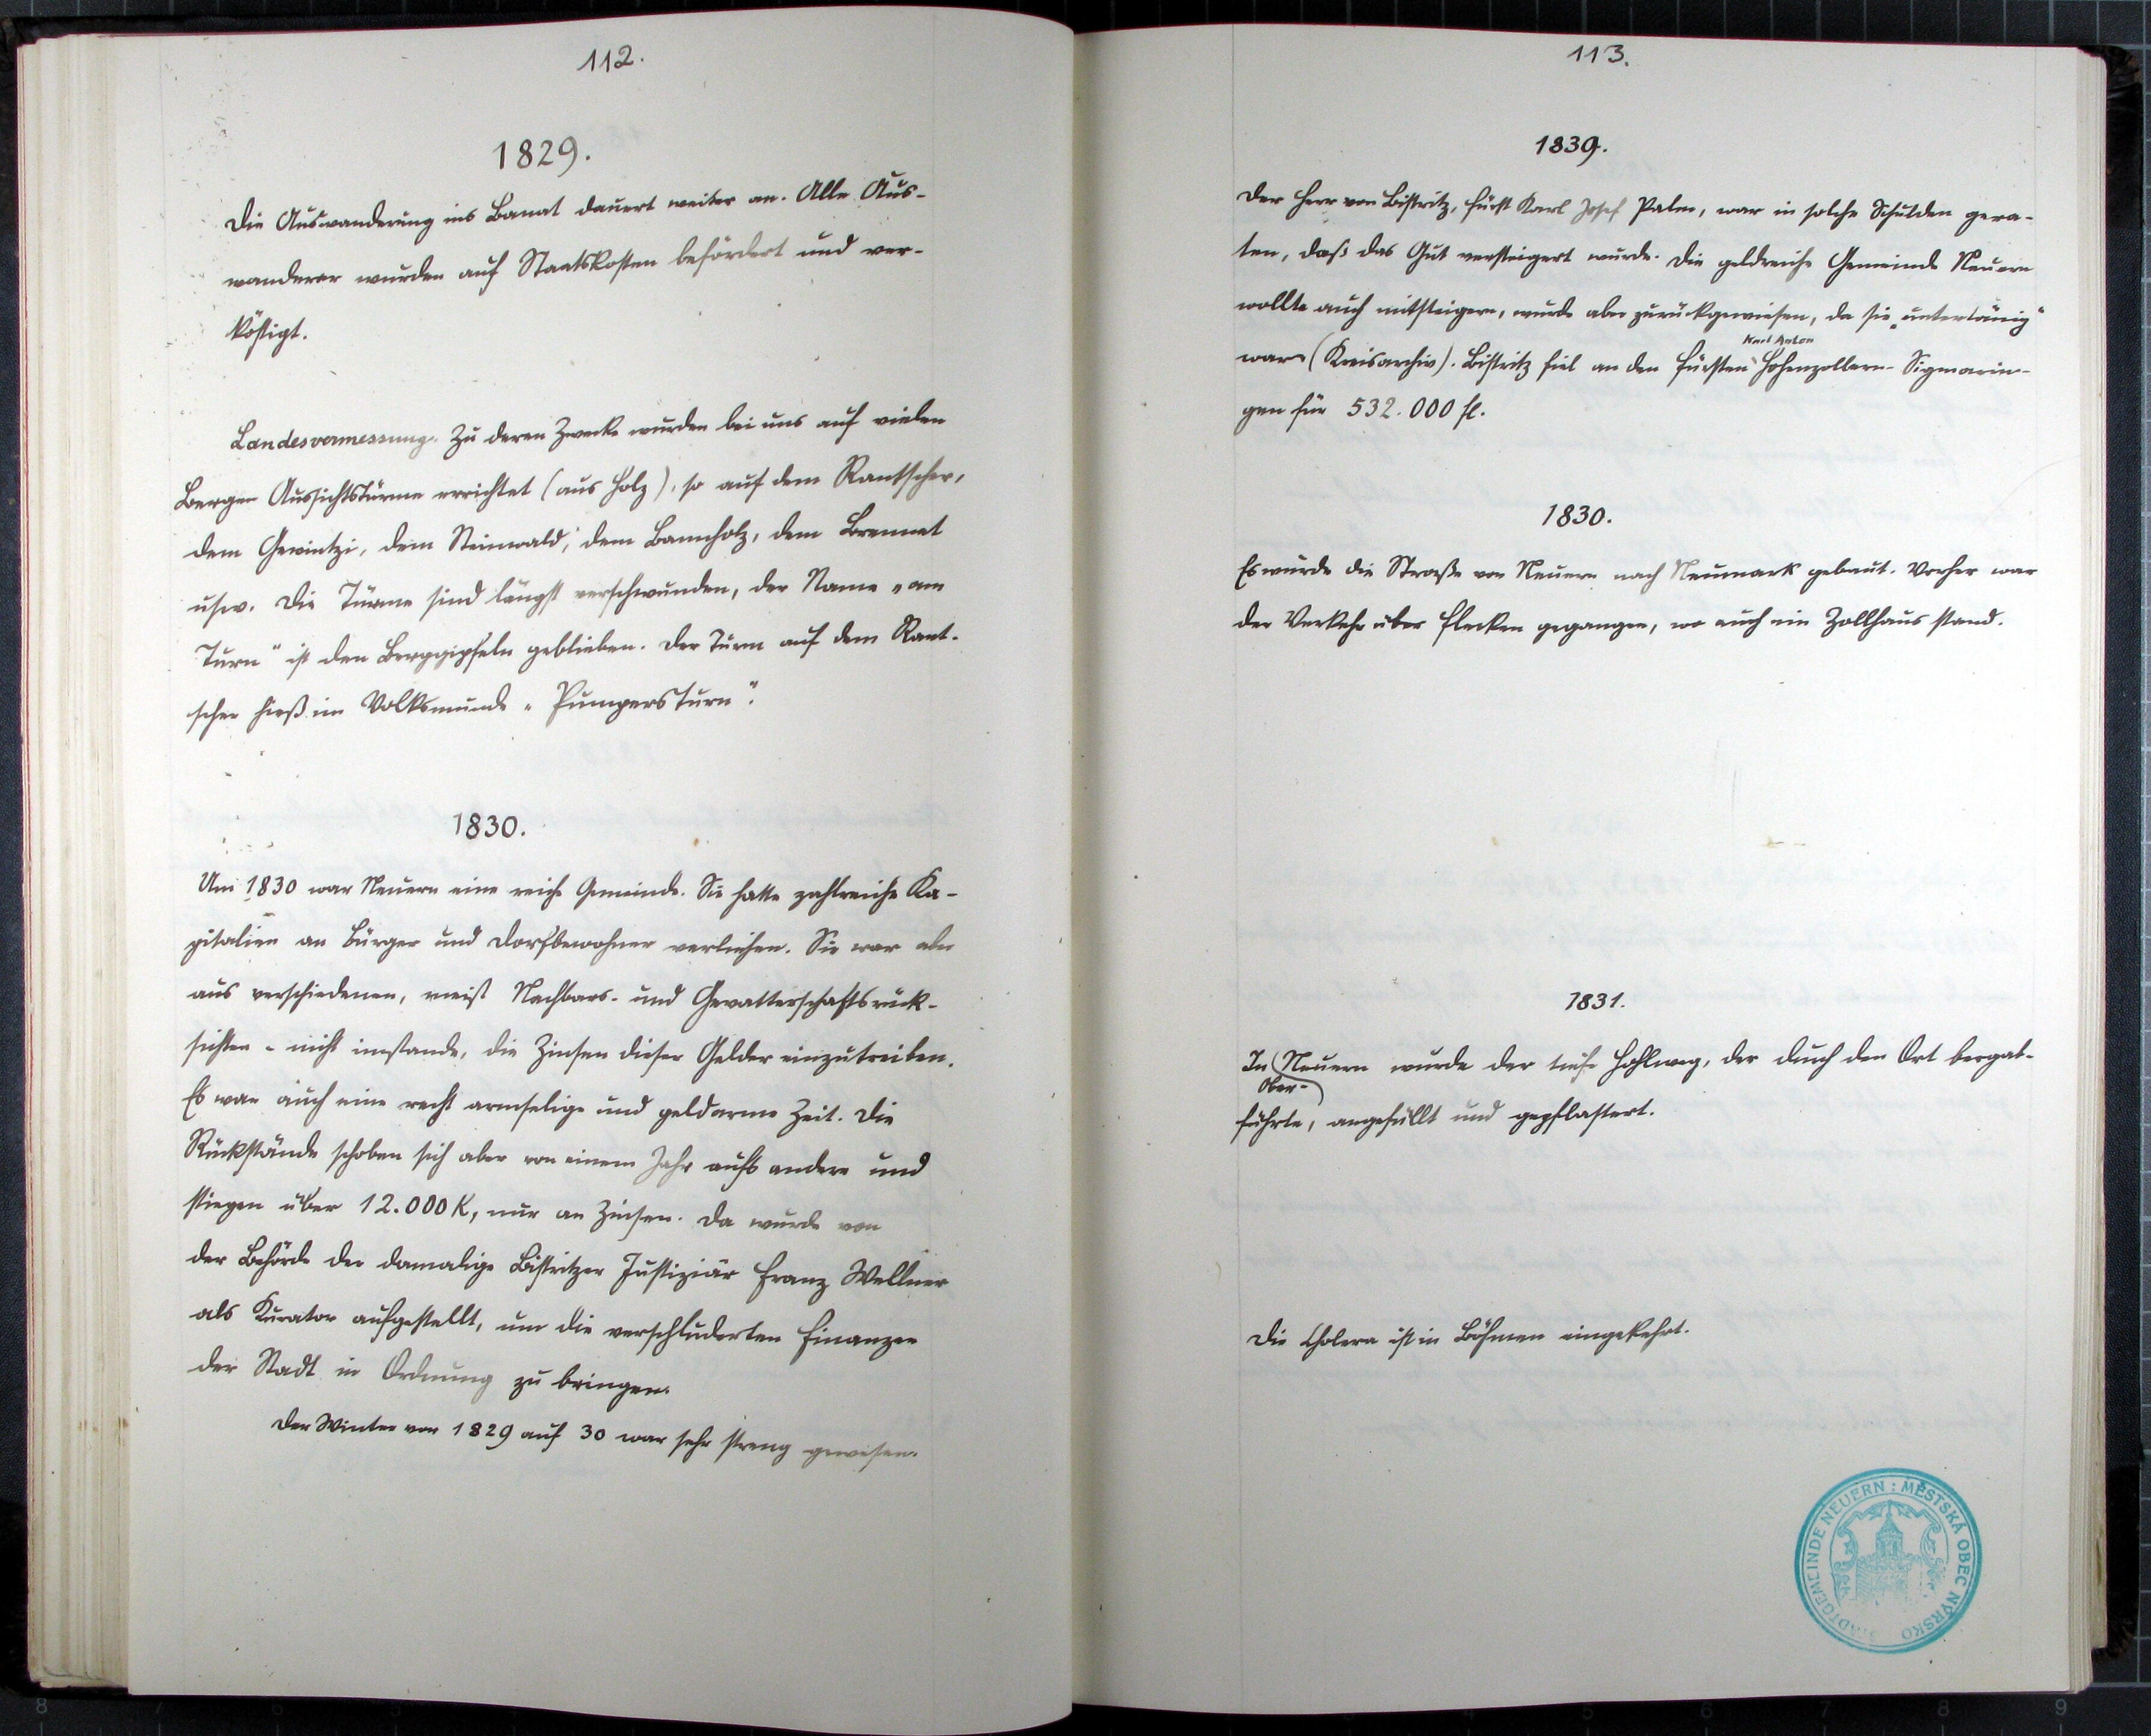 112.
1829.
Die Auswanderung ins Banat dauert weiter an. Alle Aus-
wanderer wurden auf Staatskosten befördert und ver-
köstigt.
Landesvermessung. Zu deren Zwecke wurden bei uns auf vielen
Bergen Aussichtstürme errichtet (aus Holz), so auf dem Rantscher,
dem Gewintzi, dem Steinwald, dem Bannholz, dem Brennet
usw. Die Türme sind längst verschwunden, der Name „am
Turn" ist den Berggipfeln geblieben. Der Turm auf dem Rant-
scher hieß im Volksmunde „Pumpersturn".
1830.
Um 1830 war Neuern eine reiche Gemeinde. Sie hatte zahlreiche Ka-
pitalien an Bürger und Dorfbewohner verliehen. Sie war aber
aus verschiedenen, meist Nachbars- und Gevatterschaftsrück-
sichten - nicht imstande, die Zinsen dieser Gelder einzutreiben.
Es war auch eine recht armselige und geldarme Zeit. Die
Rückstände schoben sich aber von einem Jahr aufs andere und
stiegen über 12.000 K, nur an Zinsen. Da wurde von
der Behörde der damalige Bistritzer Justiziär Franz Wellner
als Kurator aufgestellt, um die verschluderten Finanzen
der Stadt in Ordnung zu bringen.
Der Winter von 1829 auf 30 war sehr streng gewesen.
113.
1839.
Der Herr von Bistritz, Fürst Karl Josef Palm, war in solche Schulden gera-
ten, daß das Gut versteigert wurde. Die geldreiche Gemeinde Neuern
wollte auch mitsteigern, wurde aber zurückgewiesen, da sie „untertänig"
Karl Anton
war (Kreisarchiv). Bistritz fiel an den Fürsten Hohenzollern-Sigmarin-
gen für 532.000 fl.
1830.
Es wurde die Straße von Neuern nach Neumark gebaut. Vorher war
der Verkehr über Flecken gegangen, wo auch ein Zollhaus stand.
1831.
In Neuern wurde der tiefe Hohlweg, der durch den Ort bergab-
Ober-
führte, angefüllt und gepflastert.
Die Cholera ist in Böhmen eingekehrt.
STADTGEMEINDE NEUERN : MĚSTSKÁ OBEC NÝRSKO